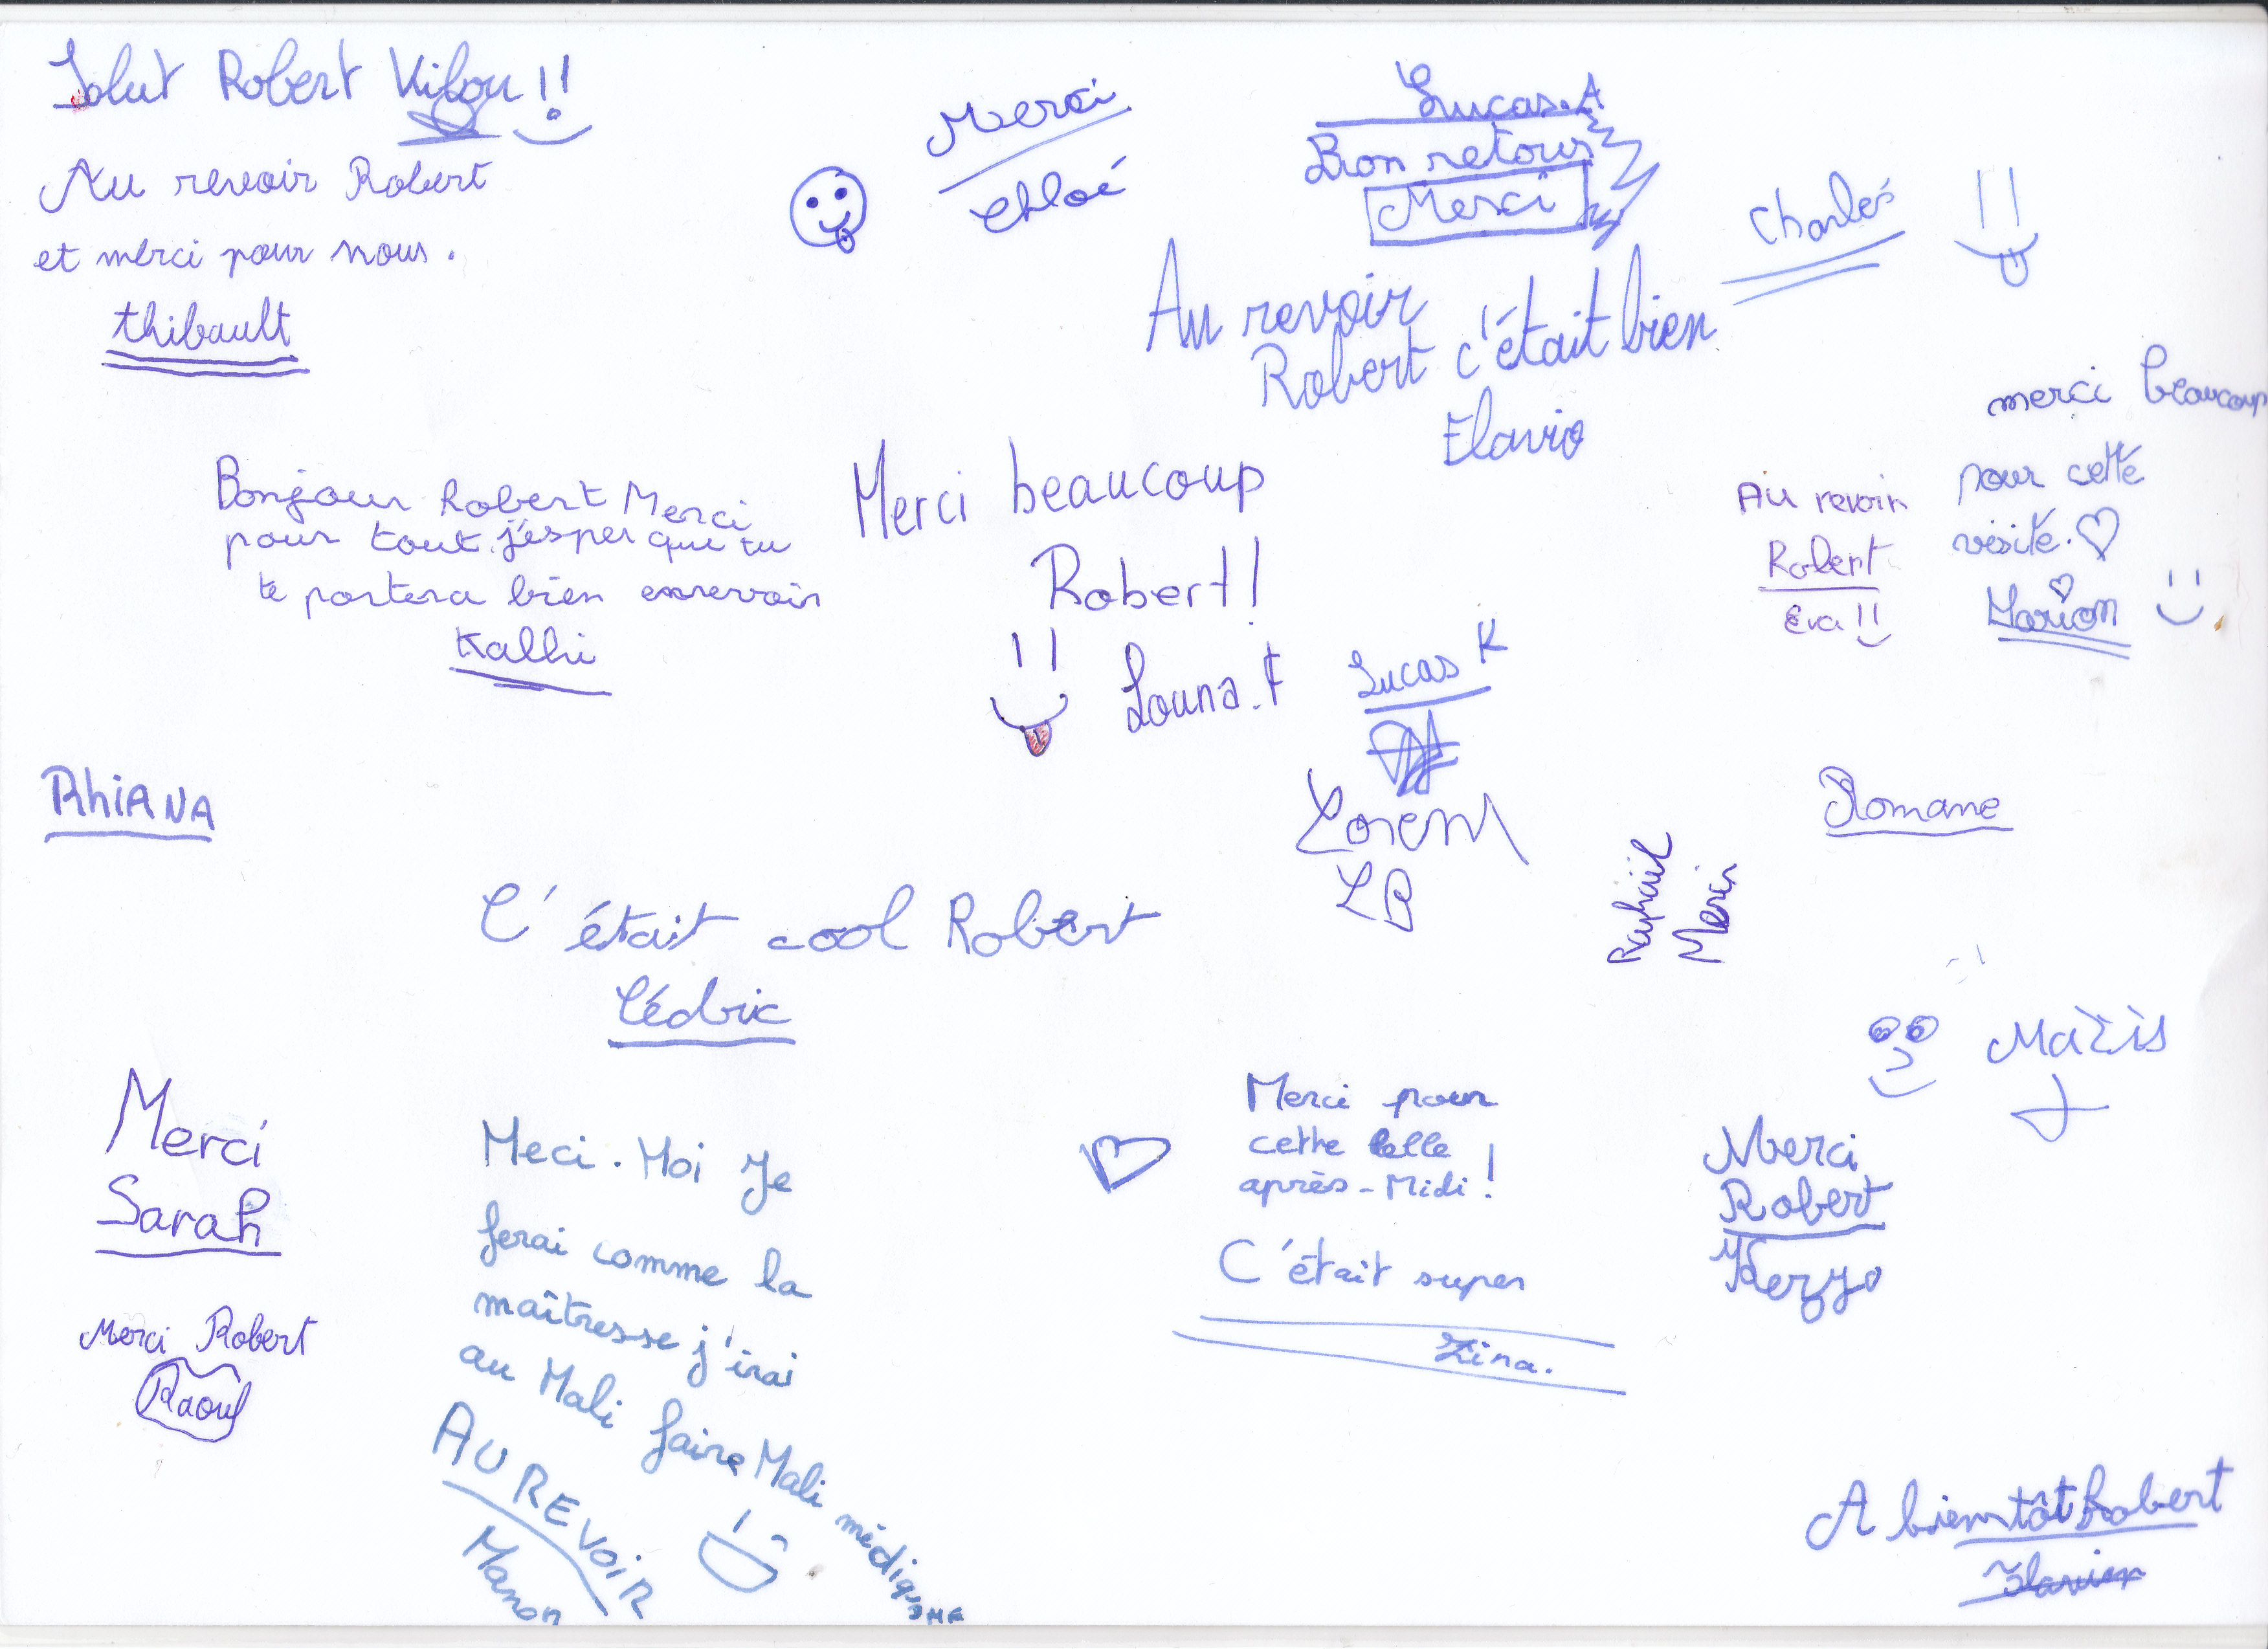 Salut Robert Kilou !!
Au revoir Robert
et merci pour nous.
thibault
Merci
Chloé
Lucas.A
Bon retour
Merci
Charles
Au revoir
Robert c'était bien
Flavio
merci beaucoup
pour cette
visite.
Marion
Au revoir
Robert
Eva !!
Bonjour Robert Merci
pour tout j'ésper que tu
te portera bien enrevoir
Kalhi
Merci beaucoup
Robert !
Louna.F
Lucas K
Lorem
LB
Rhiana
Romane
Raphaël
Merci
C'était cool Robert
Cédric
Merci
Sarah
Meci. Moi Je
ferai comme la
maîtresse j'irai
au Mali faire Mali médiqsMF
AU REVOIR
Manon
Merci pour
cette belle
après-Midi !
C'était super
Zina.
Merci
Robert
Merci Robert
Raoul
A bientôt Robert